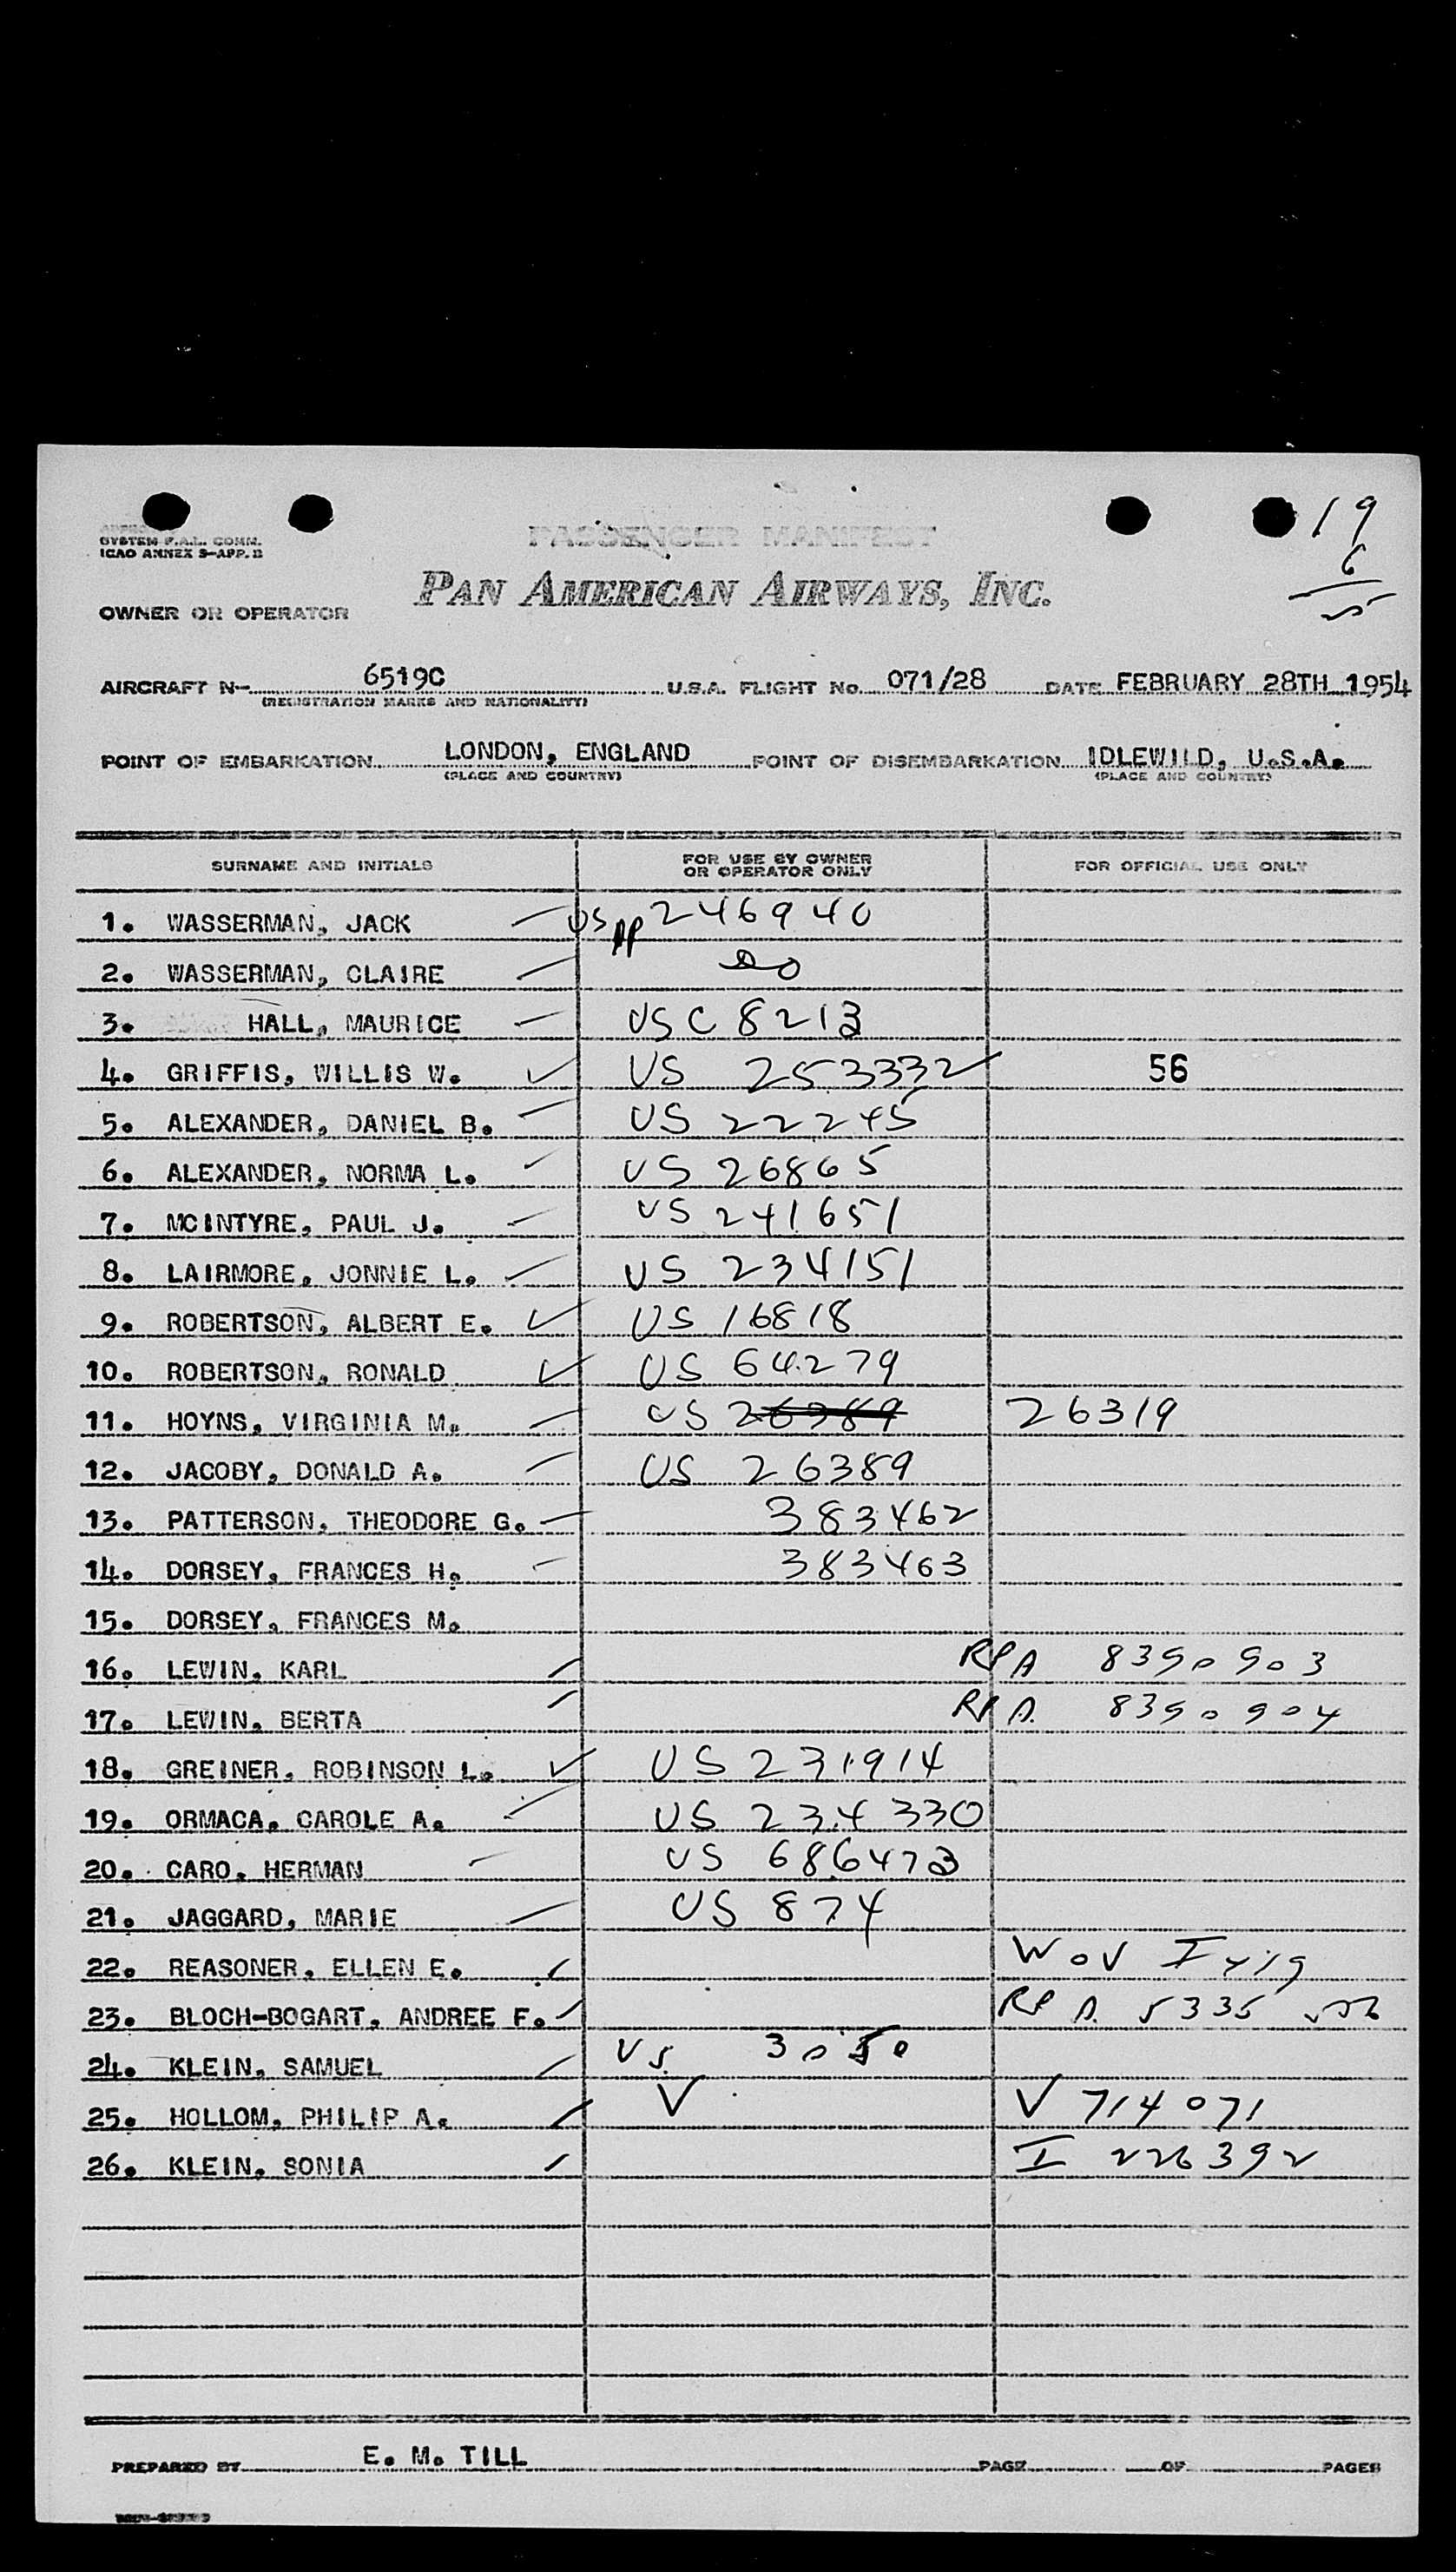 19
6
SYSTEM F.A.L. COMM.
ICAO ANNEX 9-APP. B
PASSENGER MANIFEST
PAN AMERICAN AIRWAYS, INC.
OWNER OR OPERATOR
AIRCRAFT N- 6519C U.S.A. FLIGHT No. 071/28 DATE FEBRUARY 28TH 1954
(REGISTRATION MARKS AND NATIONALITY)
POINT OF EMBARKATION LONDON, ENGLAND POINT OF DISEMBARKATION IDLEWILD, U.S.A.
(PLACE AND COUNTRY) (PLACE AND COUNTRY)
SURNAME AND INITIALS FOR USE BY OWNER OR OPERATOR ONLY FOR OFFICIAL USE ONLY
1. WASSERMAN, JACK US PP 246940
2. WASSERMAN, CLAIRE Do
3. HALL, MAURICE USC 8213
4. GRIFFIS, WILLIS W. US 253332 56
5. ALEXANDER, DANIEL B. US 22245
6. ALEXANDER, NORMA L. US 26865
7. MCINTYRE, PAUL J. US 241651
8. LAIRMORE, JONNIE L. US 234151
9. ROBERTSON, ALBERT E. US 16818
10. ROBERTSON, RONALD US 64279
11. HOYNS, VIRGINIA M. US 26389 26319
12. JACOBY, DONALD A. US 26389
13. PATTERSON, THEODORE G. 383462
14. DORSEY, FRANCES H. 383463
15. DORSEY, FRANCES M.
16. LEWIN, KARL RPA 8390903
17. LEWIN, BERTA RPA 8390904
18. GREINER, ROBINSON L. US 231914
19. ORMACA, CAROLE A. US 234330
20. CARO, HERMAN US 686473
21. JAGGARD, MARIE US 874
22. REASONER, ELLEN E. WOV I
23. BLOCH-BOGART, ANDREE F. RPA 5335
24. KLEIN, SAMUEL US 3050
25. HOLLOM, PHILIP A. V V 714071
26. KLEIN, SONIA I 226392
PREPARED BY E. M. TILL PAGE OF PAGES